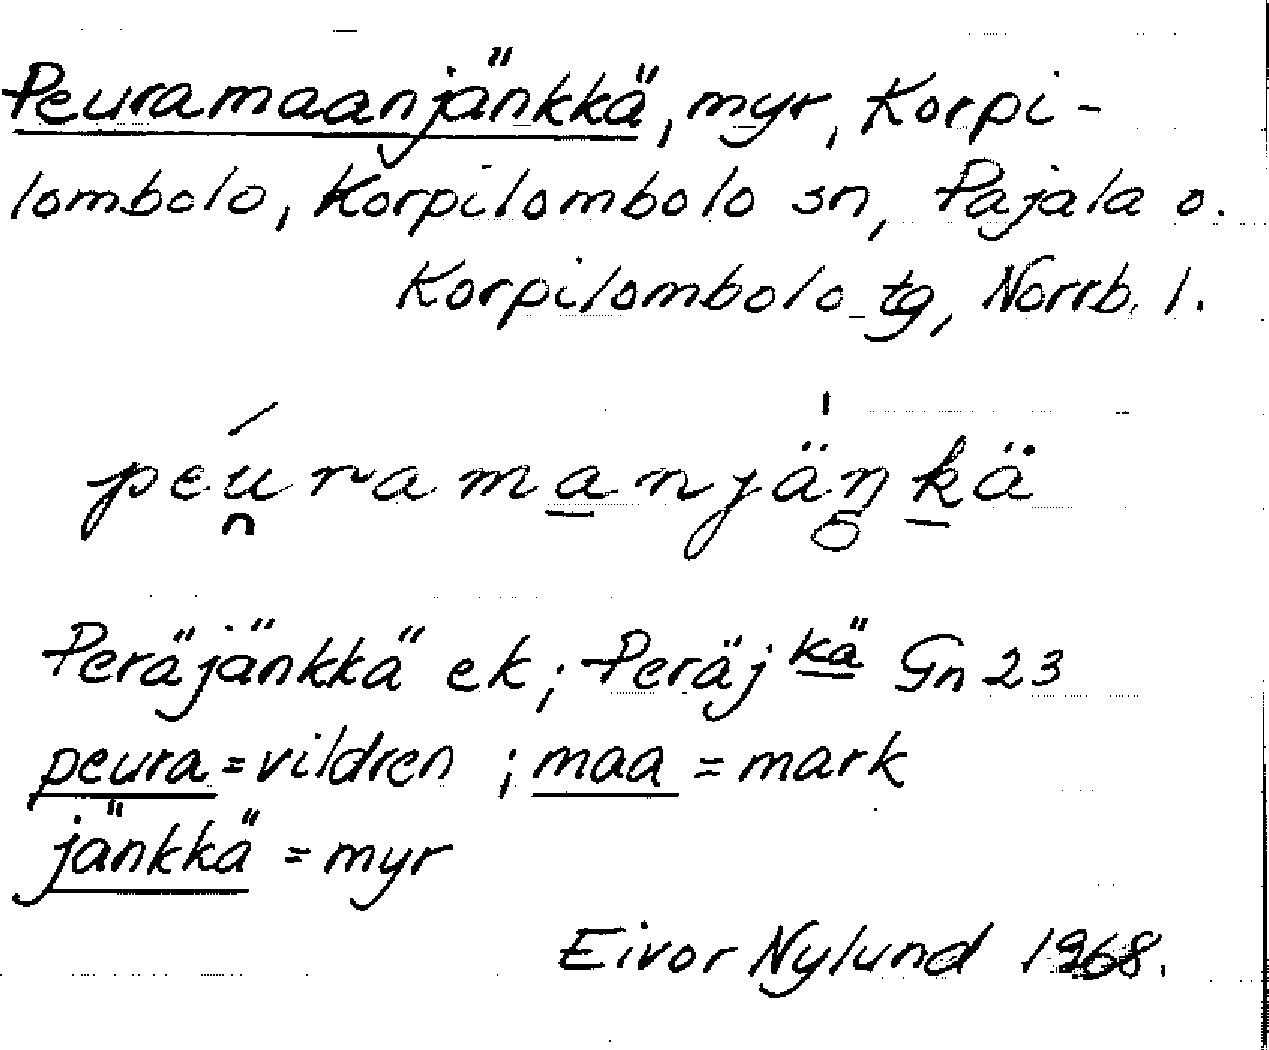 Peuramaanjänkkä, myr, Korpi-
lombolo, Korpilombolo sn, Pajala o.
Korpilombolo tg, Norrb. l.
péu̯rama̱njäŋ̥ḵä
Peräjänkkä ek; Peräj kä Gn 23
peura = vildren ; maa = mark
jänkkä = myr
Eivor Nylund 1968.